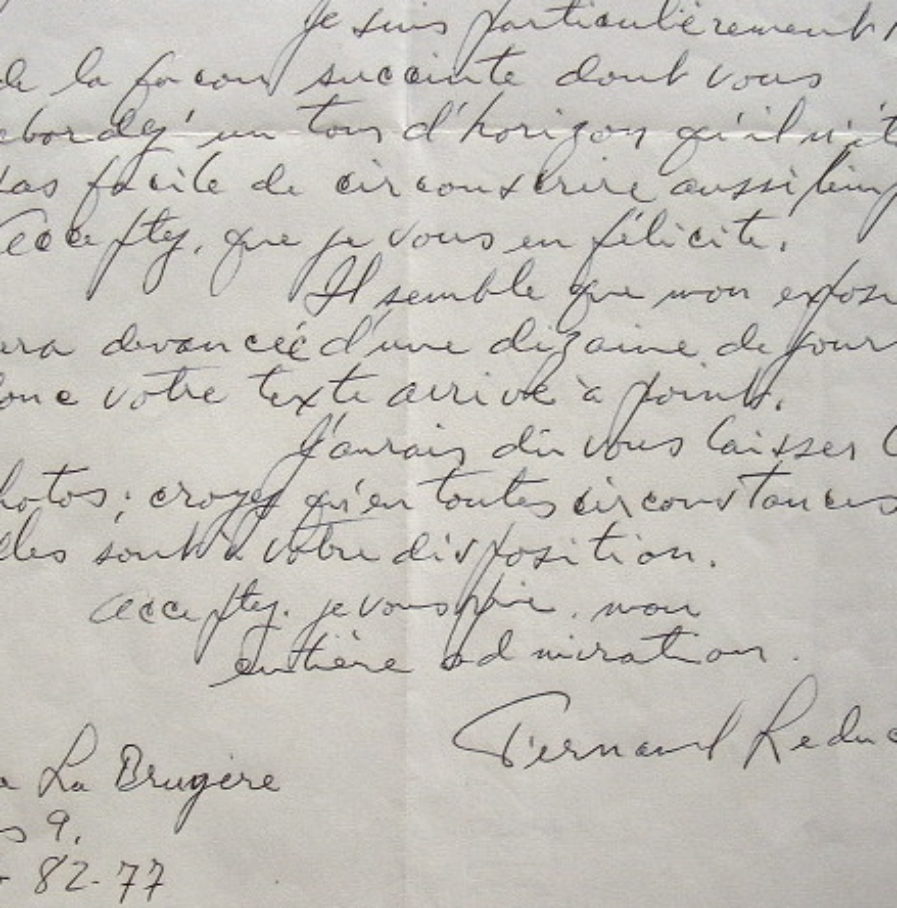 Je suis particulièrement
de la façon succinte dont vous
abordez un tour d'horizon qu'il n'ét
pas facile de circonscrire aussi limp
Acceptez, que je vous en félicite.
Il semble que mon expos
era devancée d'une dizaine de jour
donc votre texte arrive à point.
J'aurais dû vous laisser l
hotos ; croyez qu'en toutes circonstances
elles sont à votre disposition.
Acceptez. je vous prie. mon
entière admiration.
Fernand Leduc
La Brugère
s 9.
82-77